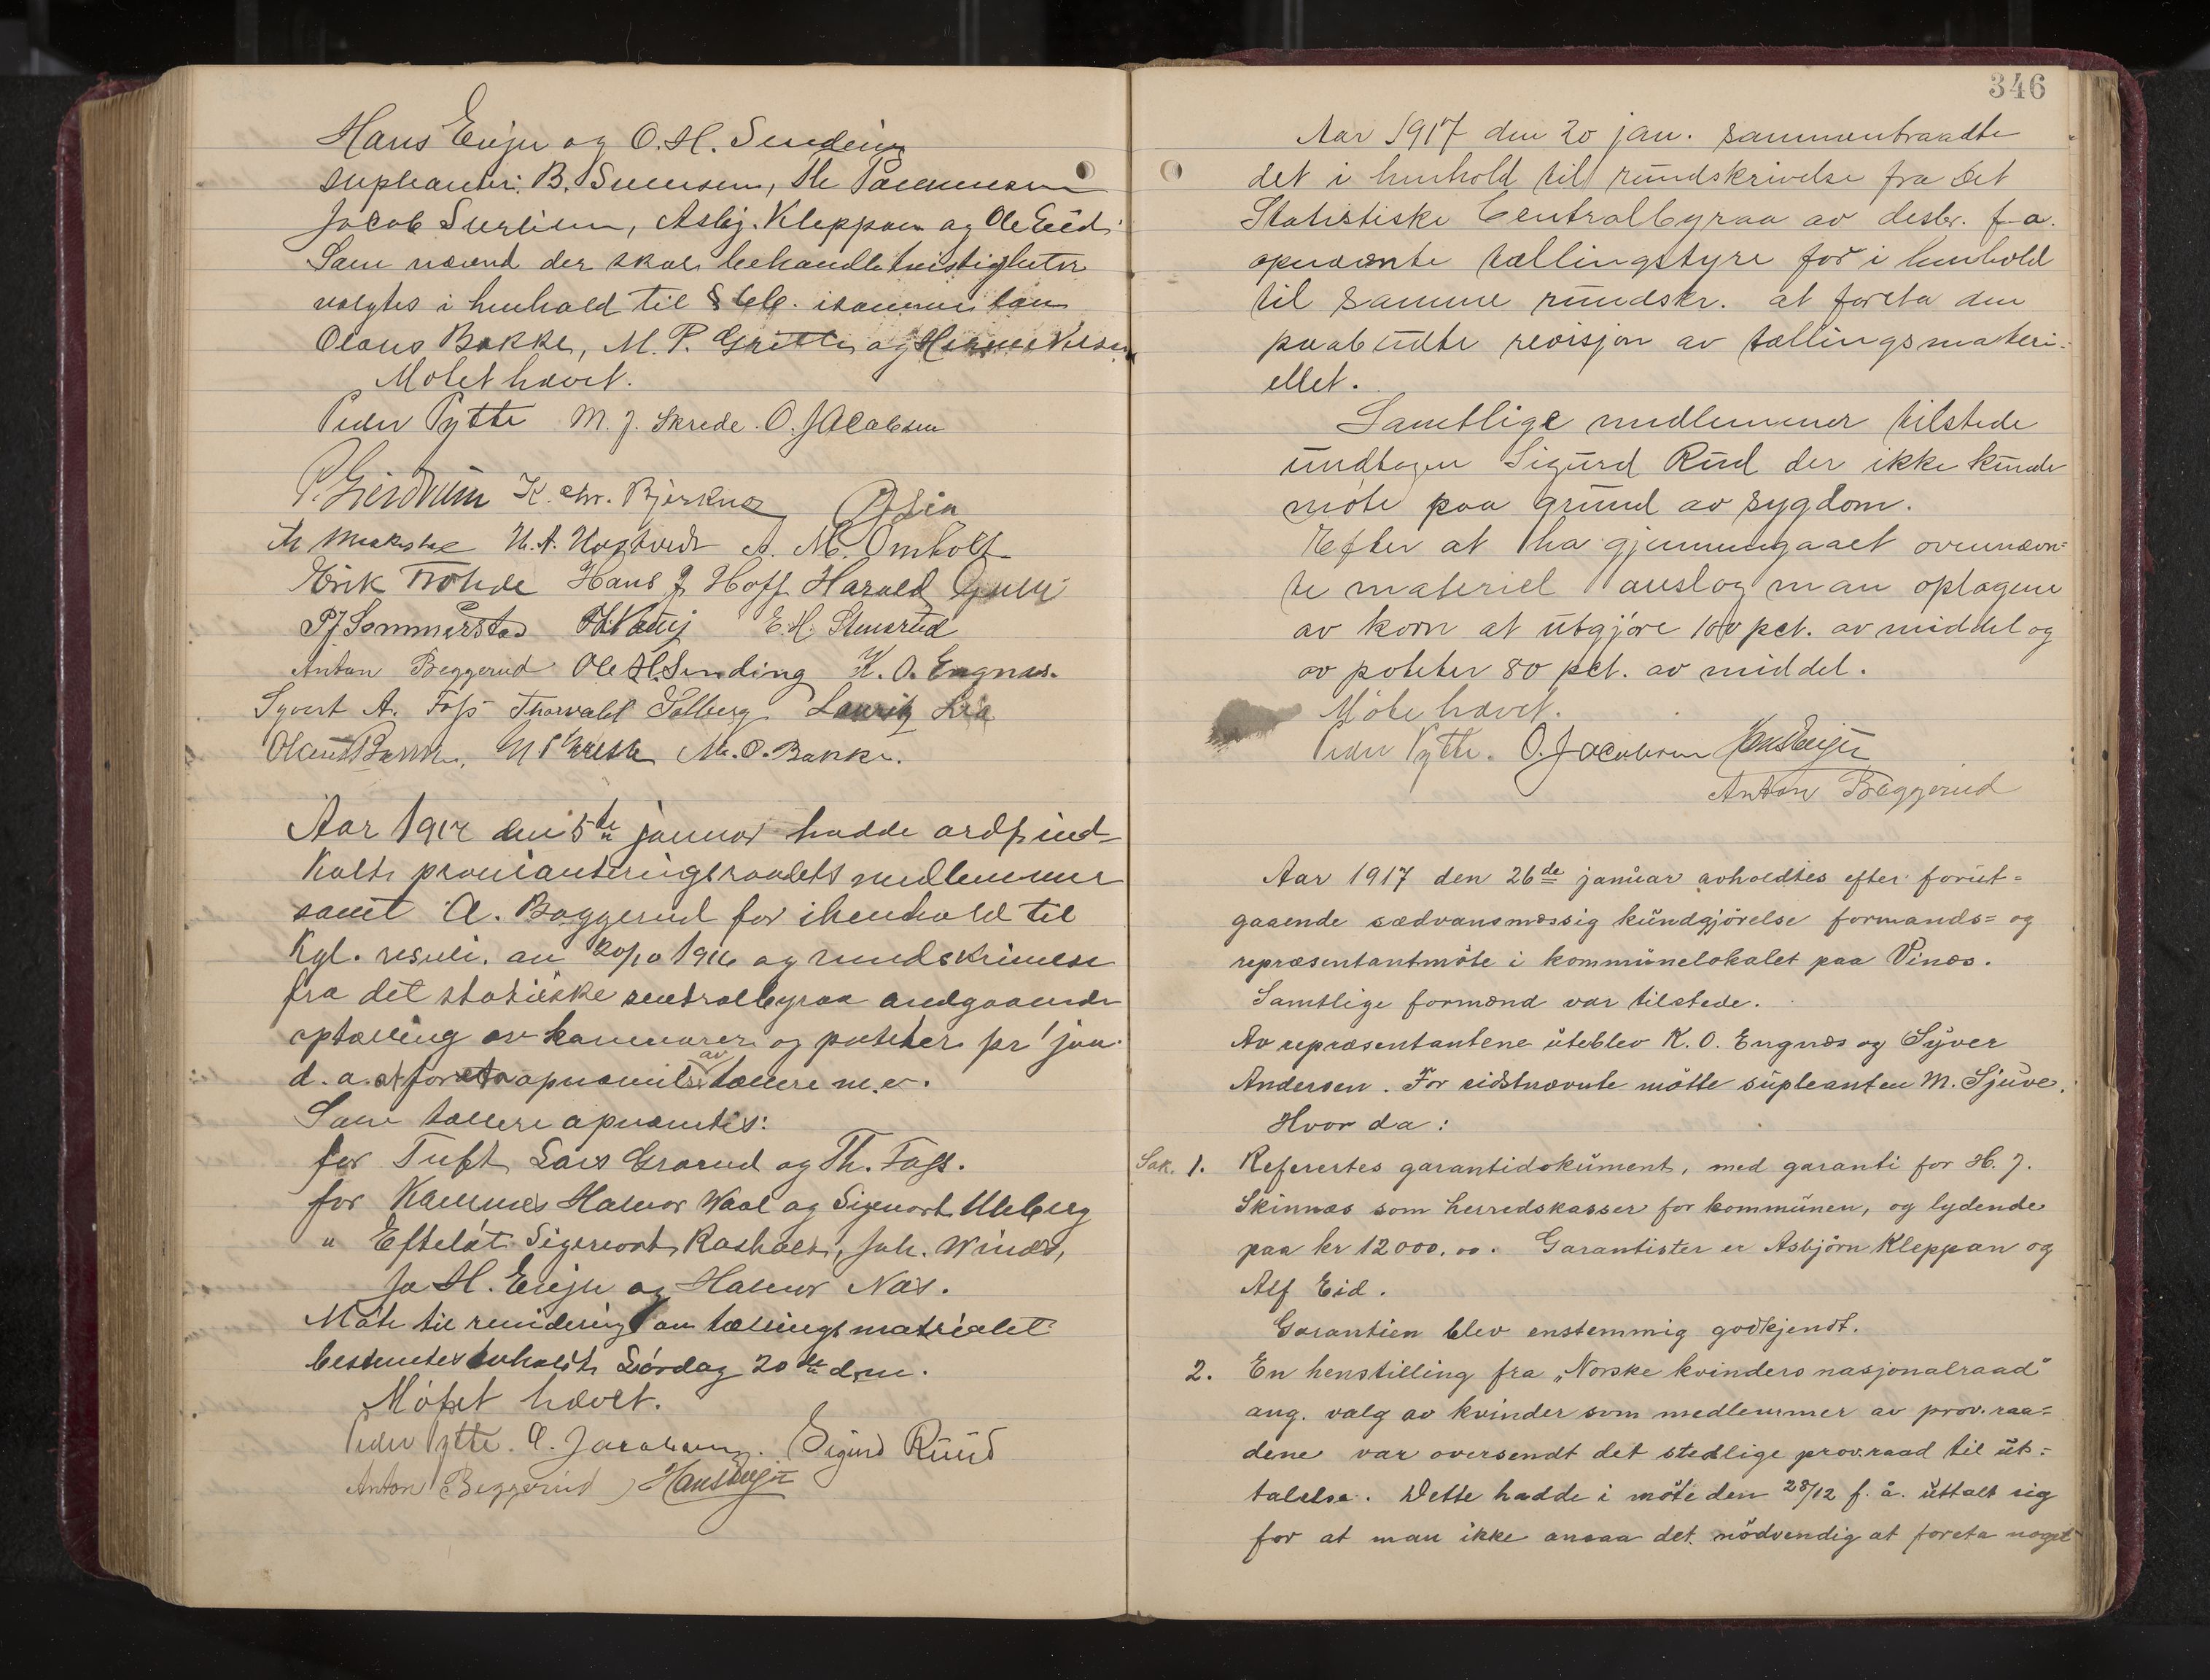 Hans Enju og O. H. Sending
supleanter: B. Svensen, Th
Jacob, Asbj. Kleppan og Ole Eid.
Som nævnd der skal behandle tvistigheter
valgtes i henhold til §
Olaus Bakke, M. P. og
Møtet hævet.
Peder Pytte M. J. Skrede. O. Jacobsen
K. Chr. Bjerknæs
H. A. A. M. Omholt
Erik Hans J. Hoff Harald
P J Sommerstad E. H. Stensrud
Anton Beggerud Ole H. Sending K. O. Engnæs.
Syvert A. Foss Thorvald Solberg Lauritz Lia
M. O. Bakke.
Aar 1917 den 5te januar hadde ordf. ind-
kaldt provianteringsraadets medlemmer
samt A. Baggerud for i henhold til
Kgl. resul. av 20/10 1916 og rundskrivelse
fra det statistiske sentralbyraa angaaende
optælling av kornvarer og poteter pr 1 jan.
d. a. at foreta opnævnelse av tællere m. v.
Som tællere opnævntes:
for Tuft Lars Grorud og Th. Foss.
for Komnes Halvor Waal og Sigvart Ulleberg
" Efteløt Sigvart Rasholt, Joh. Winæs,
Jo H. Enju og Halvor Næs.
Møte til revidering av tællingsmatrialet
bestemtes avholdt Lördag 20de dm.
Møtet hævet.
Peder Pytte. O. Jacobsen. Sigurd Ruud
Anton Beggerud, Hans Enju
346
Aar 1917 den 20 jan. sammentraadte
det i henhold til rundskrivelse fra Det
Statistiske Centralbyraa av desbr. f. a.
opnævnte tællingstyre for i henhold
til samme rundskr. at foreta den
paabudte revisjon av tællingsmateri-
ellet.
Samtlige medlemmer tilstede
undtagen Sigurd Rud der ikke kunde
møte paa grund av sygdom.
Efter at ha gjennemgaaet ovennævn-
te materiel anslog man oplagene
av korn at utgjøre 100 pct. av middel og
av poteter 80 pct. av middel.
Møte hævet.
Peder Pytte. O. Jacobsen Hans Enju
Anton Beggerud
Aar 1917 den 26de januar avholdtes efter forut-
gaaende sædvansmæssig kundgjörelse formands- og
repræsentantmöte i kommunelokalet paa Vinæs.
Samtlige formænd var tilstede.
Av repræsentantene uteblev K. O. Engnæs og Syver
Andersen. For sidstnævnte mötte supleanten M. Sjuve.
Hvor da:
Sak. 1. Referertes garantidokument, med garanti for H. J.
Skinnæs som herredskasser for kommunen, og lydende
paa kr 12000,00. Garantister er Asbjörn Kleppan og
Alf Eid.
Garantien blev enstemmig godkjendt.
2. En henstilling fra „Norske kvinders nasjonalraad"
ang. valg av kvinder som medlemmer av prov.raa-
dene var oversendt det stedlige prov.raad til ut-
talelse. Dette hadde i möte den 28/12 f. å. uttalt sig
for at man ikke ansaa det nödvendig at foreta noget